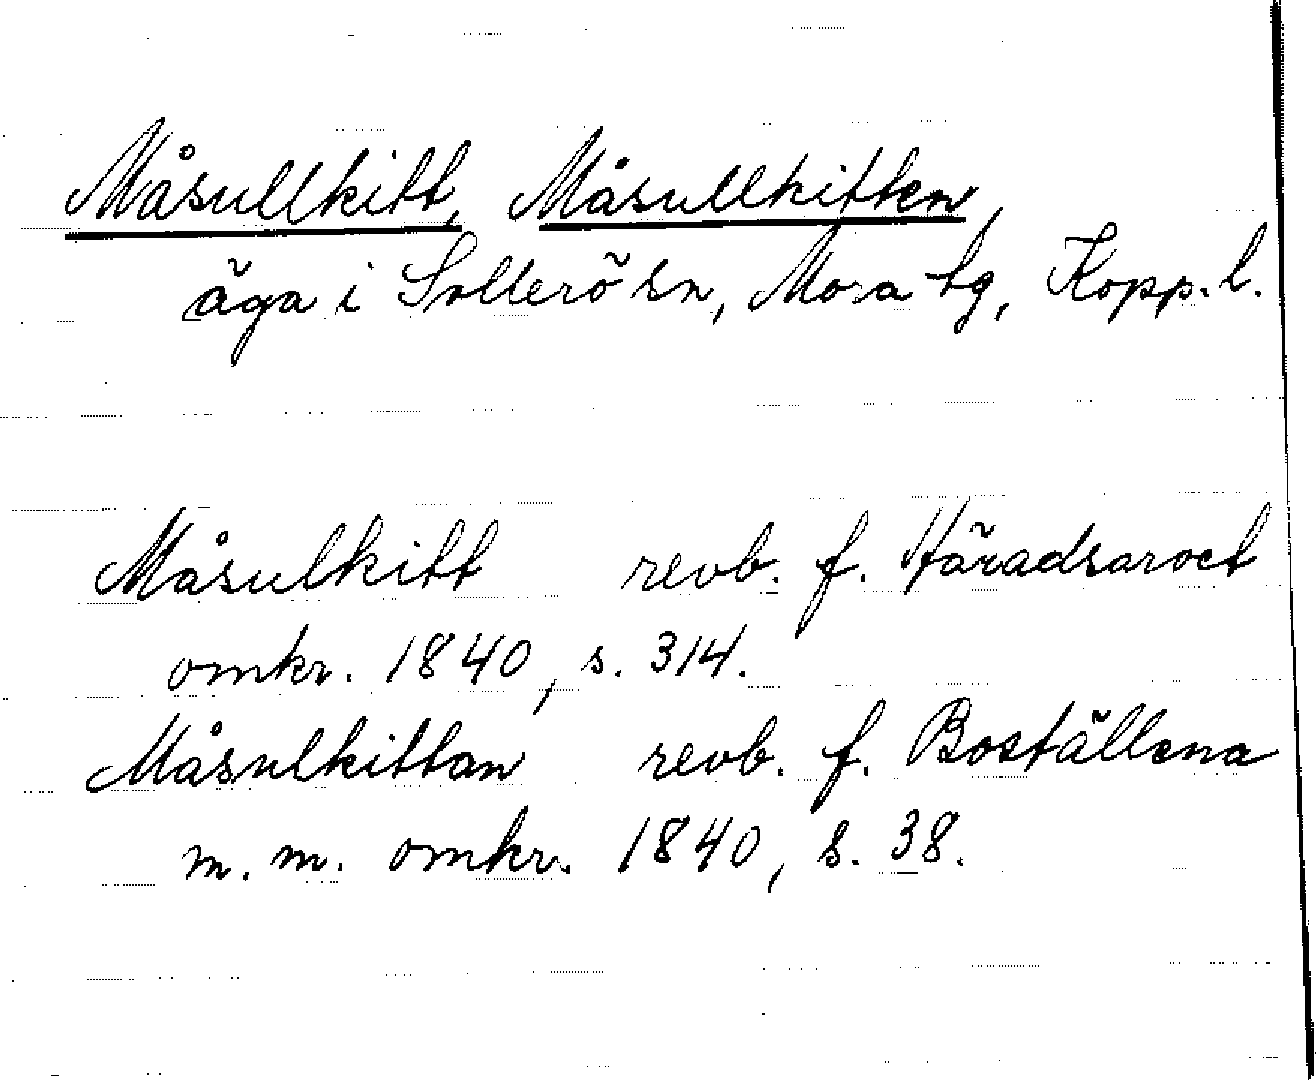 Måsullkitt, Måsullkitten,
äga i Sollerö sn, Mora tg, Kopp. l.
Måsulkitt revb. f. Häradsarvet
omkr. 1840, s. 314.
Måsulkittan revb. f. Boställena
m. m. omkr. 1840, s. 38.